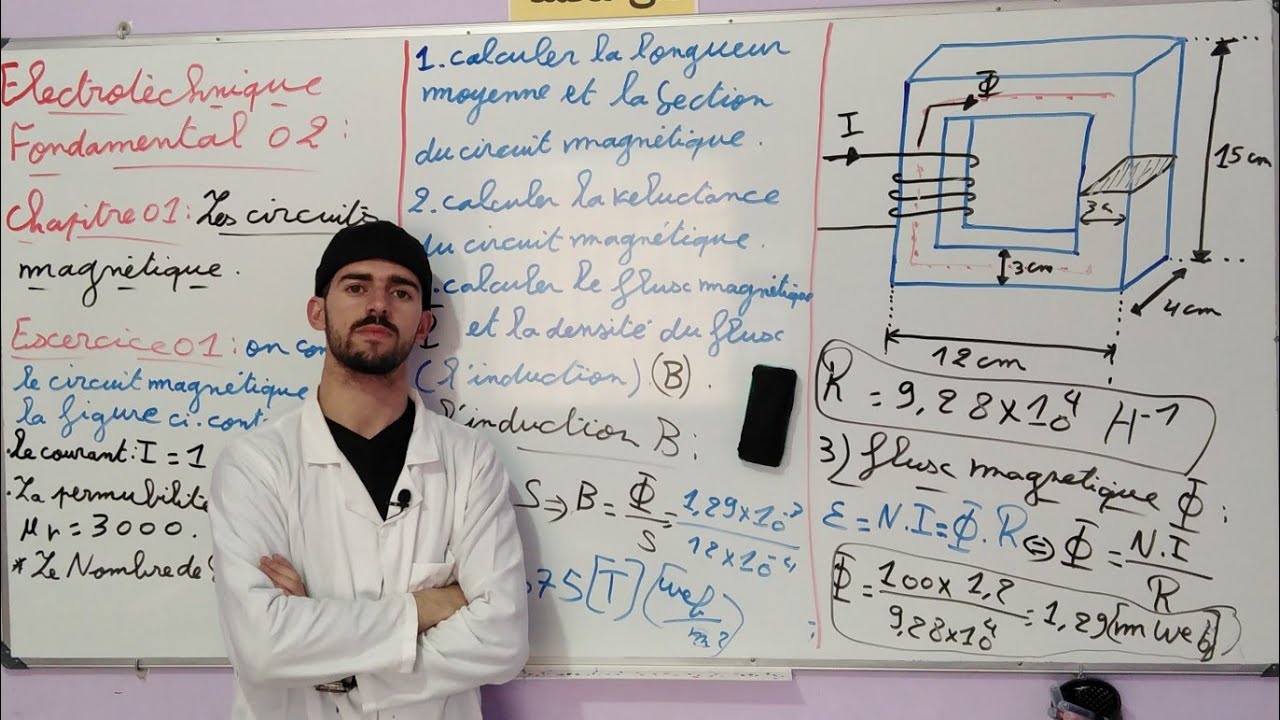 Electrotèchnique
Fondamental 02:
chapitre 01: Les circuits
magnètique.
Excercice 01: on con
le circuit magnétique
la figure ci.cont
.le courant: I = 1
.La permubilité
μr = 3000.
* Le Nombre de
1. calculer la longueur
moyenne et la section
du circuit magnétique.
2. calculer la reluctance
du circuit magnétique.
.calculer le flux magnétique
Φ et la densité du flux
(l'induction) (B).
l'induction B:
S => B = Φ/S = 1,29x10⁻³/12x10⁻⁴
75 [T] (web/m²)
I
Φ
15 cm
3c
3cm
4cm
12 cm
R = 9,28x10⁴ H⁻¹
3) flux magnetique Φ:
ε = N.I = Φ.R <=> Φ = N.I/R
Φ = 100x1,2/9,28x10⁴ = 1,29[m web]